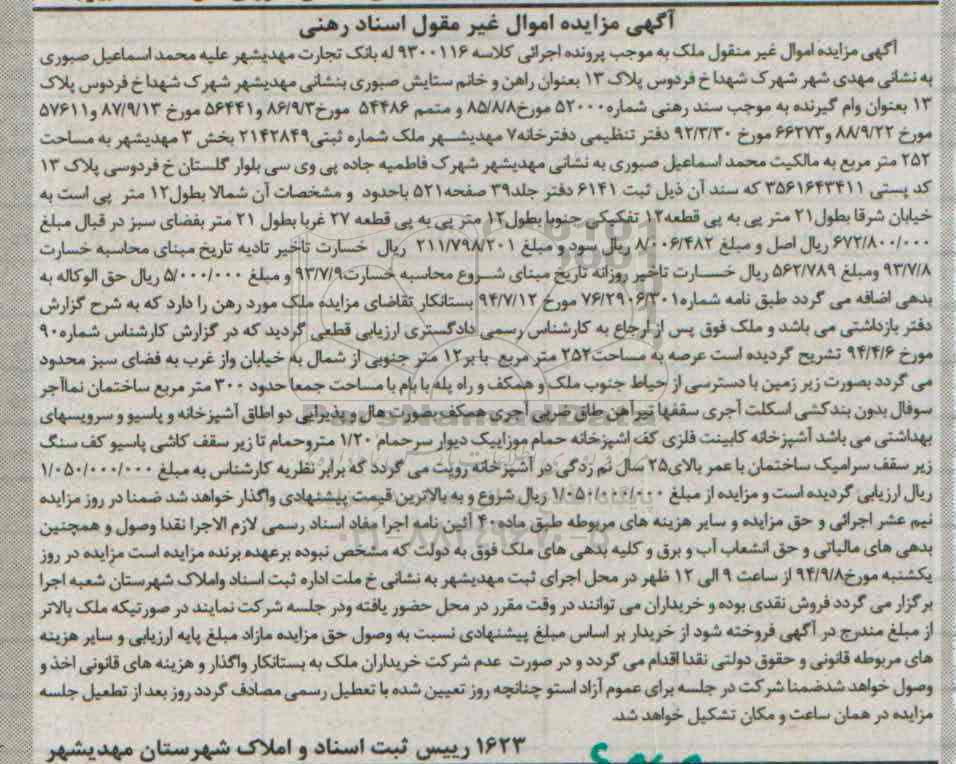 آگهی مزایده اموال غیر مقول اسناد رهنی
آگهی مزایده اموال غیر منقول ملک به موجب پرونده اجرائی کلاسه ۹۳۰۰۱۱۶ له بانک تجارت مهدیشهر علیه محمد اسماعیل صبوری
به نشانی مهدی شهر شهرک شهدا خ فردوس پلاک ۱۳ بعنوان راهن و خانم ستایش صبوری بنشانی مهدیشهر شهرک شهدا خ فردوس پلاک
۱۳ بعنوان وام گیرنده به موجب سند رهنی شماره ۵۲۰۰۰ مورخ ۸۵/۸/۸ و متمم ۵۴۴۸۶ مورخ ۸۶/۹/۳ و ۵۶۴۴۱ مورخ ۸۷/۹/۱۳ و ۵۷۶۱۱
مورخ ۸۸/۹/۲۲ و ۶۶۲۷۳ مورخ ۹۲/۳/۳۰ دفتر تنظیمی دفترخانه ۷ مهدیشهر ملک شماره ثبتی ۲۱۴۲۸۴۹ بخش ۳ مهدیشهر به مساحت
۲۵۲ متر مربع به مالکیت محمد اسماعیل صبوری به نشانی مهدیشهر شهرک فاطمیه جاده پی وی سی بلوار گلستان خ فردوسی پلاک ۱۳
کد پستی ۳۵۶۱۶۴۳۴۱۱ که سند آن ذیل ثبت ۶۱۴۱ دفتر جلد ۳۹ صفحه ۵۲۱ باحدود و مشخصات آن شمالا بطول ۱۲ متر پی است به
خیابان شرقا بطول ۲۱ متر پی به پی قطعه ۱۲ تفکیکی جنوبا بطول ۱۲ متر پی به پی قطعه ۲۷ غربا بطول ۲۱ متر بفضای سبز در قبال مبلغ
۶۷۲/۸۰۰/۰۰۰ ریال اصل و مبلغ ۸/۰۰۶/۴۸۲ ریال سود و مبلغ ۲۱۱/۷۹۸/۲۰۱ ریال خسارت تاخیر تادیه تاریخ مبنای محاسبه خسارت
۹۳/۷/۸ ومبلغ ۵۶۲/۷۸۹ ریال خسارت تاخیر روزانه تاریخ مبنای شروع محاسبه خسارت ۹۳/۷/۹ و مبلغ ۵/۰۰۰/۰۰۰ ریال حق الوکاله به
بدهی اضافه می گردد طبق نامه شماره ۷۶/۲۹۰۶/۳۰۱ مورخ ۹۴/۷/۱۲ بستانکار تقاضای مزایده ملک مورد رهن را دارد که به شرح گزارش
دفتر بازداشتی می باشد و ملک فوق پس از ارجاع به کارشناس رسمی دادگستری ارزیابی قطعی گردید که در گزارش کارشناس شماره ۹۰
مورخ ۹۴/۴/۶ تشریح گردیده است عرصه به مساحت ۲۵۲ متر مربع با بر ۱۲ متر جنوبی از شمال به خیابان واز غرب به فضای سبز محدود
می گردد بصورت زیر زمین با دسترسی از حیاط جنوب ملک و همکف و راه پله با بام با مساحت جمعا حدود ۳۰۰ متر مربع ساختمان نماآجر
سوفال بدون بندکشی اسکلت آجری سقفها تیرآهن طاق ضربی آجری همکف بصورت هال و پذیرایی دو اطاق آشپزخانه و پاسیو و سرویسهای
بهداشتی می باشد آشپزخانه کابینت فلزی کف اشپزخانه حمام موزاییک دیوار سرحمام ۱/۲۰ متروحمام تا زیر سقف کاشی پاسیو کف سنگ
زیر سقف سرامیک ساختمان با عمر بالای ۲۵ سال نم زدگی در آشپزخانه رویت می گردد که برابر نظریه کارشناس به مبلغ ۱/۰۵۰/۰۰۰/۰۰۰
ریال ارزیابی گردیده است و مزایده از مبلغ ۱/۰۵۰/۰۰۰/۰۰۰ ریال شروع و به بالاترین قیمت پیشنهادی واگذار خواهد شد ضمنا در روز مزایده
نیم عشر اجرائی و حق مزایده و سایر هزینه های مربوطه طبق ماده ۴۰ آئین نامه اجرا مفاد اسناد رسمی لازم الاجرا نقدا وصول و همچنین
بدهی های مالیاتی و حق انشعاب آب و برق و کلیه بدهی های ملک فوق به دولت که مشخص نبوده برعهده برنده مزایده است مزایده در روز
یکشنبه مورخ ۹۴/۹/۸ از ساعت ۹ الی ۱۲ ظهر در محل اجرای ثبت مهدیشهر به نشانی خ ملت اداره ثبت اسناد واملاک شهرستان شعبه اجرا
برگزار می گردد فروش نقدی بوده و خریداران می توانند در وقت مقرر در محل حضور یافته ودر جلسه شرکت نمایند در صورتیکه ملک بالاتر
از مبلغ مندرج در آگهی فروخته شود از خریدار بر اساس مبلغ پیشنهادی نسبت به وصول حق مزایده مازاد مبلغ پایه ارزیابی و سایر هزینه
های مربوطه قانونی و حقوق دولتی نقدا اقدام می گردد و در صورت عدم شرکت خریداران ملک به بستانکار واگذار و هزینه های قانونی اخذ و
وصول خواهد شدضمنا شرکت در جلسه برای عموم آزاد استو چنانچه روز تعیین شده با تعطیل رسمی مصادف گردد روز بعد از تعطعیل جلسه
مزایده در همان ساعت و مکان تشکیل خواهد شد.
۱۶۲۳ رییس ثبت اسناد و املاک شهرستان مهدیشهر